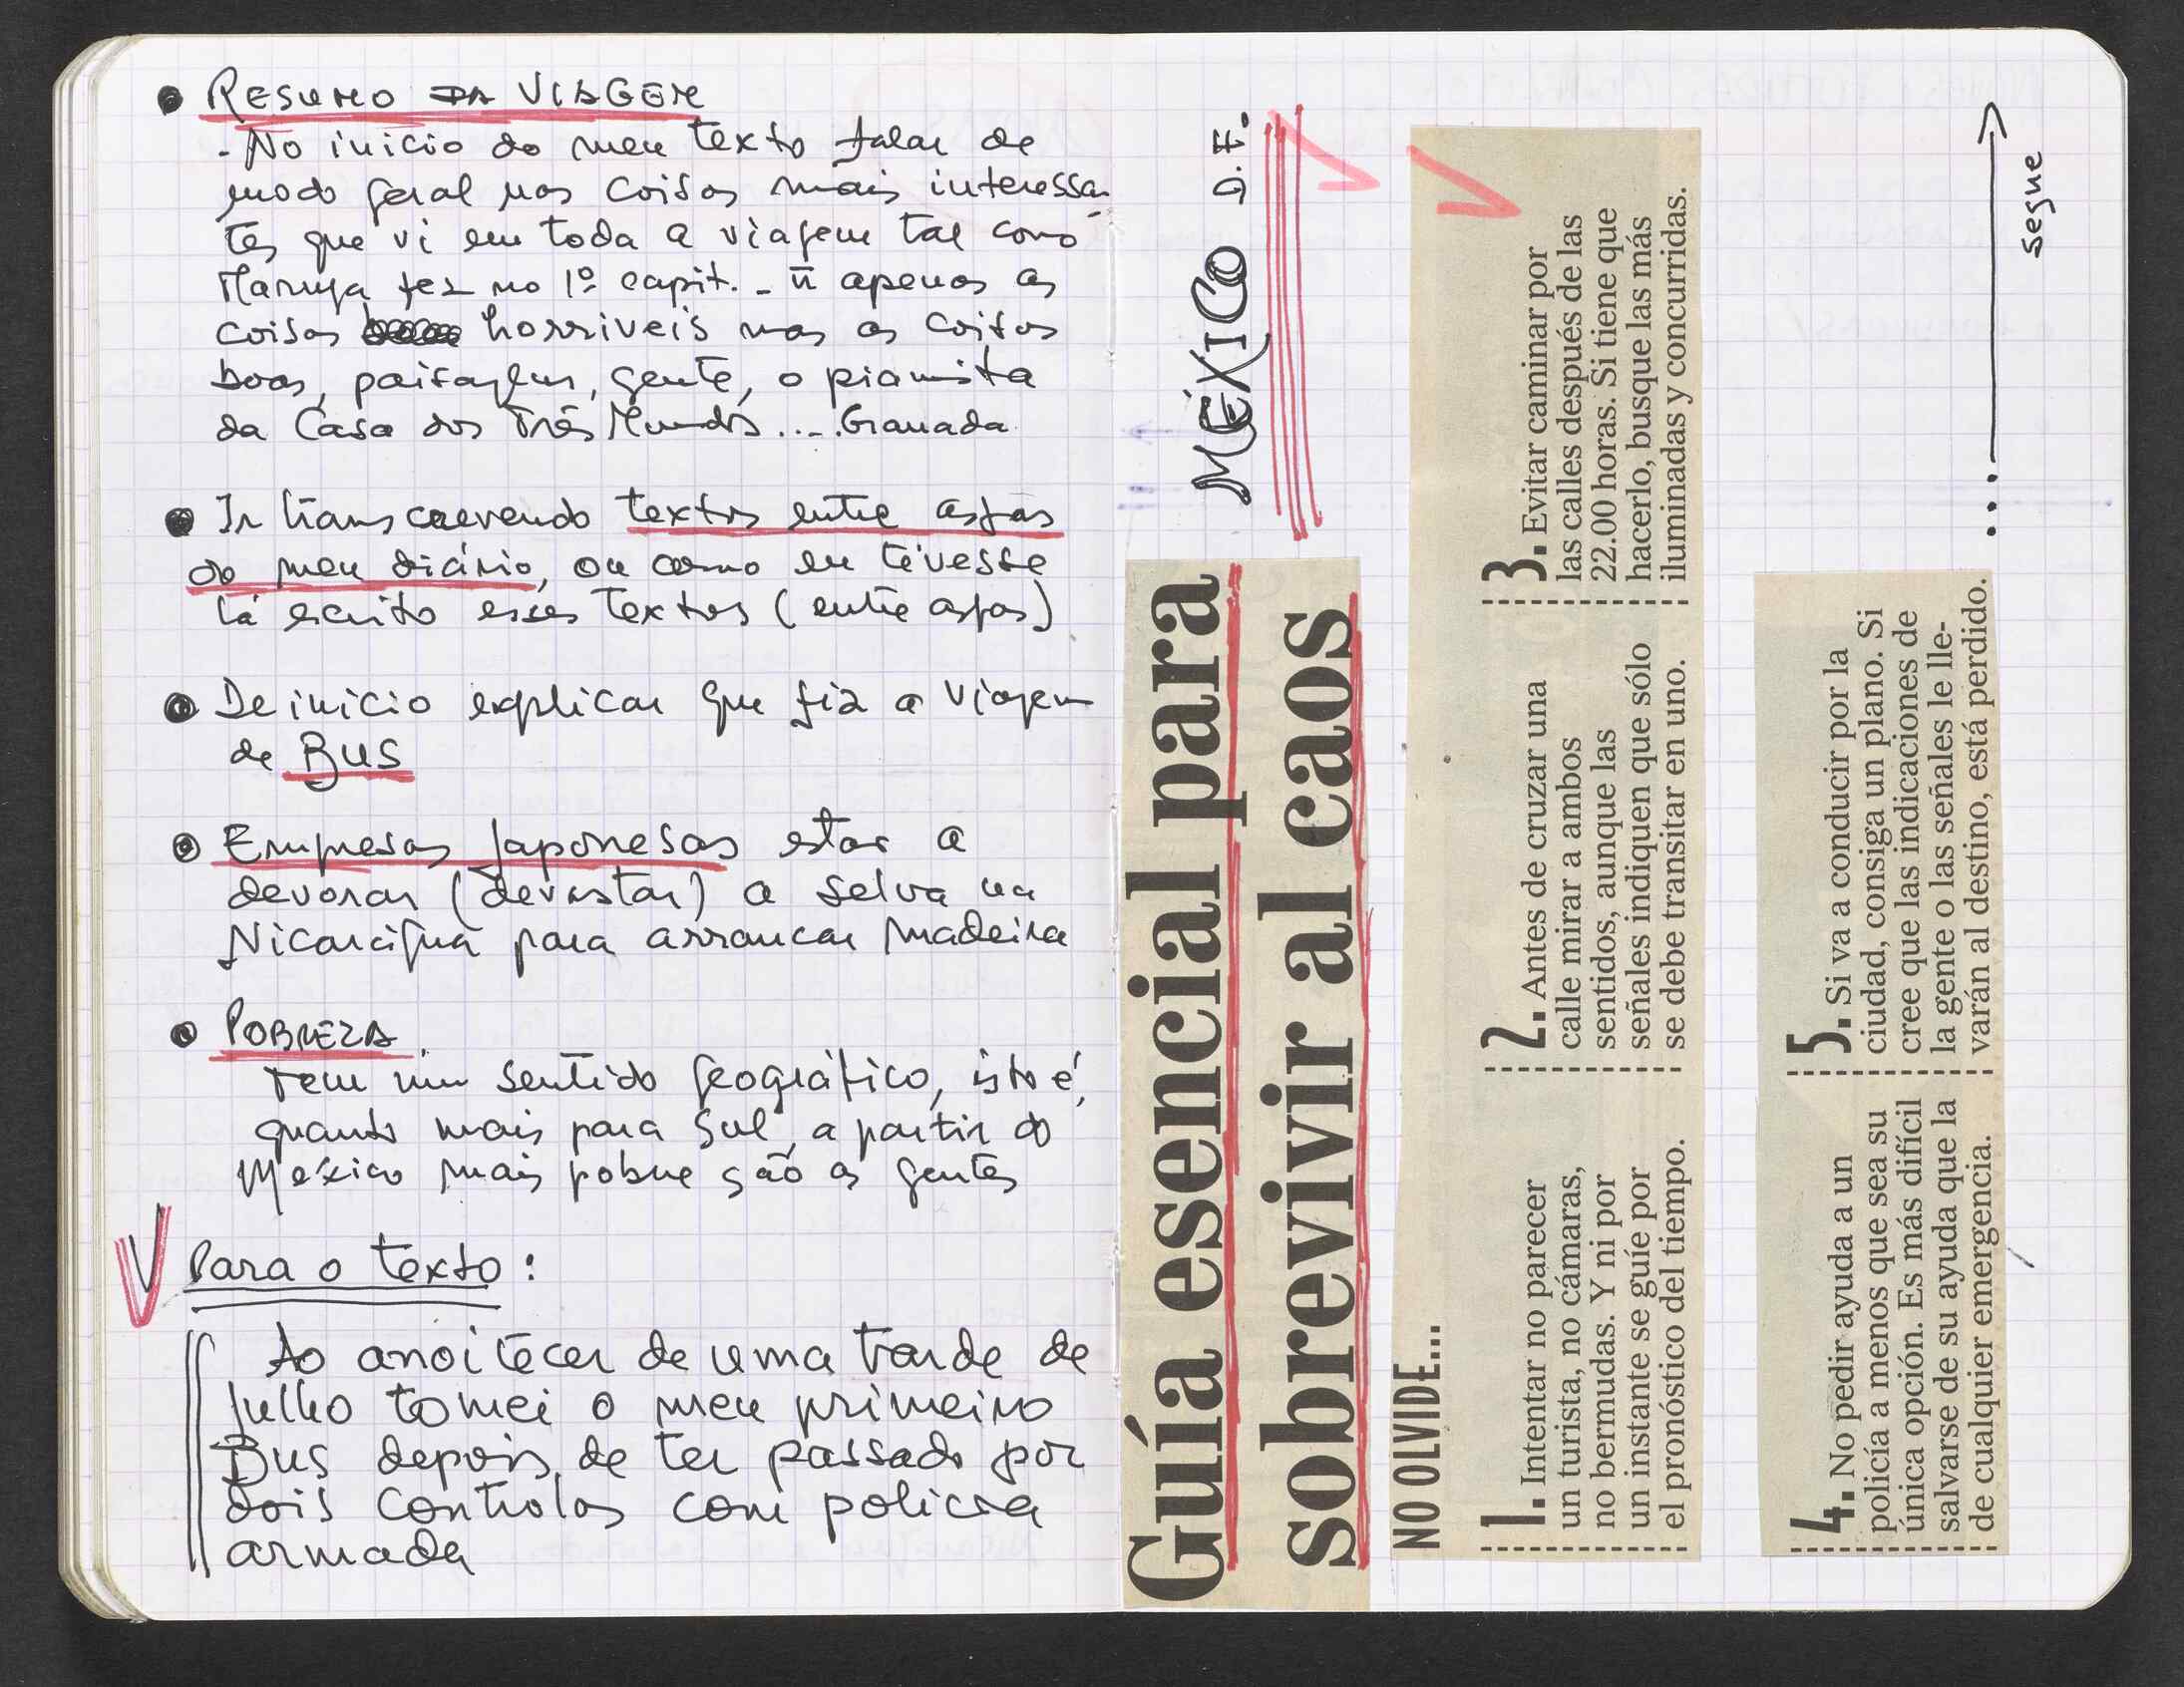 RESUMO DA VIAGEM
- No inicio do meu texto falar de
modo geral nas coisas mais interessan-
tes que vi em toda a viagem tal como
Maruja fez no 1º capit. - ñ apenas as
coisas horriveis mas as coisas
boas, paisagens, gente, o pianista
da Casa dos Três Mundos .... Granada
Ir transcrevendo textos entre aspas
do meu diário, ou como eu tivesse
lá escrito esses textos (entre aspas)
De inicio explicar que fiz a viagem
de BUS
Empresas japonesas estar a
devorar (devastar) a selva na
Nicarágua para arrancar madeira
POBREZA
Tem um sentido geográfico, isto é,
quanto mais para Sul, a partir do
México mais pobre são as gentes
Para o texto:
Ao anoitecer de uma tarde de
julho tomei o meu primeiro
Bus depois de ter passado por
dois controlos com policia
armada
MÉXICO D.F.
Guía esencial para
sobrevivir al caos
NO OLVIDE...
1. Intentar no parecer
un turista, no cámaras,
no bermudas. Y ni por
un instante se guíe por
el pronóstico del tiempo.
2. Antes de cruzar una
calle mirar a ambos
sentidos, aunque las
señales indiquen que sólo
se debe transitar en uno.
3. Evitar caminar por
las calles después de las
22.00 horas. Si tiene que
hacerlo, busque las más
iluminadas y concurridas.
4. No pedir ayuda a un
policía a menos que sea su
única opción. Es más difícil
salvarse de su ayuda que la
de cualquier emergencia.
5. Si va a conducir por la
ciudad, consiga un plano. Si
cree que las indicaciones de
la gente o las señales le lle-
varán al destino, está perdido.
... segue